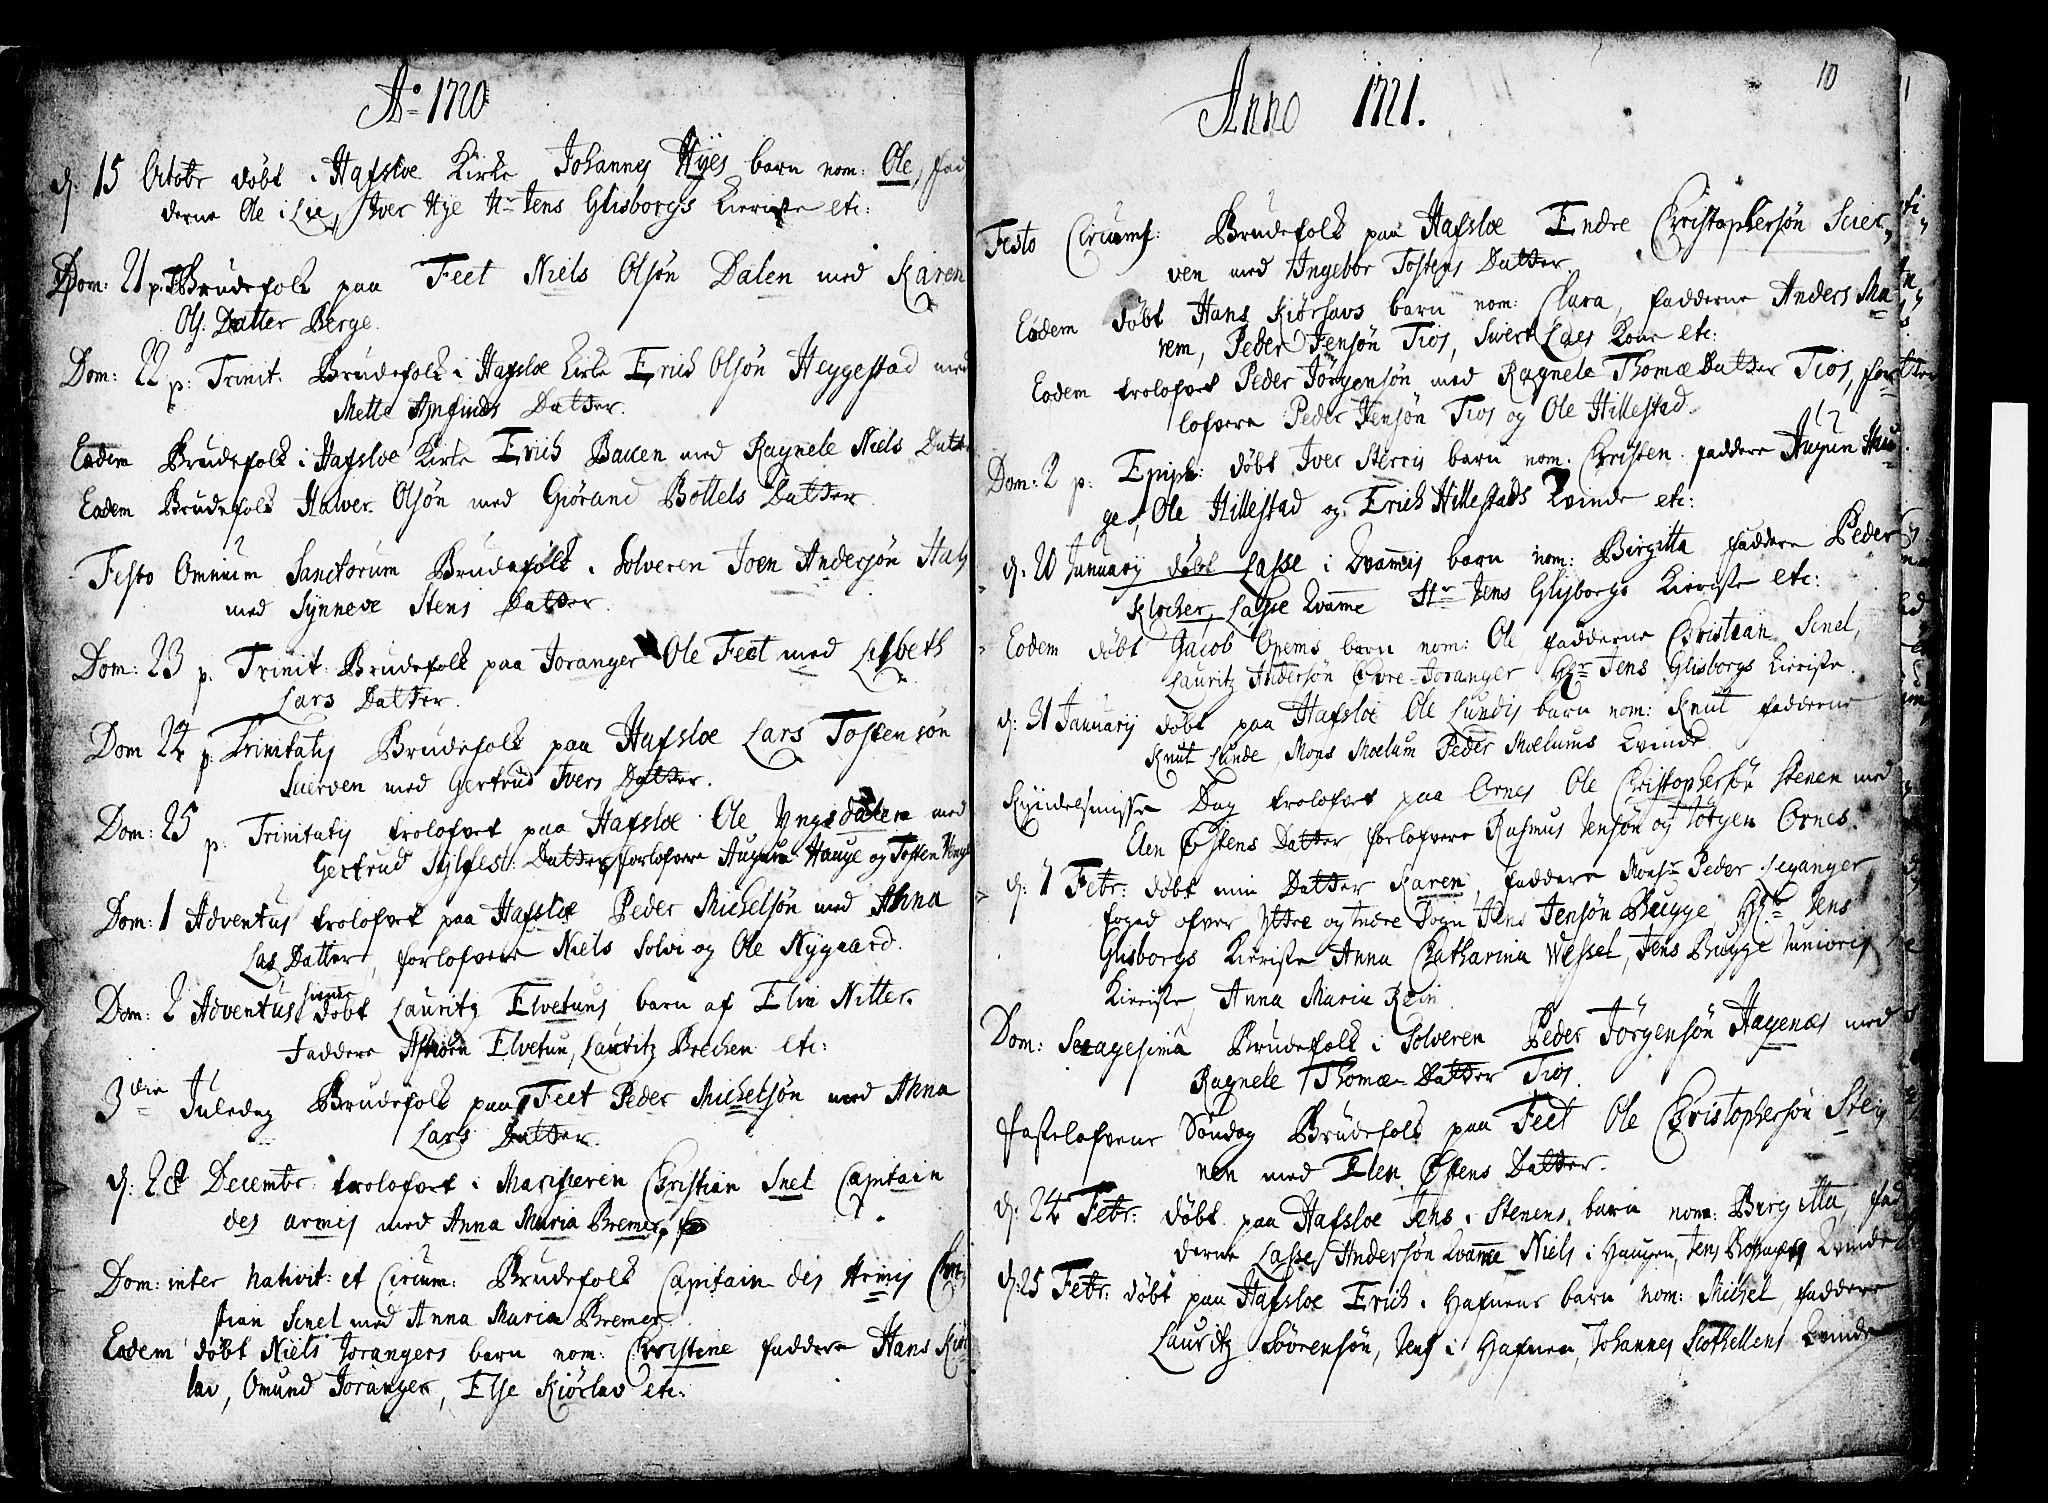 Ao 1720
d: 15 Octobr döbt i Hafsloe Kirke Johannes Hyes barn nom: Ole, fad
derne Ole i Lie, Iver Hye Hr Jens Glisborgs Kieriste etc:
Dom: 21 p. T Brudefolk paa Feet Niels Olsön Dalen med Karen
Ols. Datter Berge.
Dom: 22 p: Trinit: Brudefolk i Hafsloe Kirke Erich Olsön Heggestad med
Mette Datter.
Eodem Brudefolk i Hafsloe Kirke Erich Bacen med Ragnele Niels Datt
Eodem Brudefolk Halver Olsön med Giörand Bottels Datter
Festo Omnium Sanctorum Brudefolk i Solveren Joen Andersön
med Synneve Stens Datter.
Dom: 23 p. Trinit: Brudefolk paa Joranger Ole Feet med Lisbeth
Lars Datter.
Dom 24 p. Trinitatis Brudefolk paa Hafsloe Lars Tostensön
Suerven med Gertrud Ivers Datter.
Dom: 25 p. Trinitatis trolofvet paa Hafsloe Ole Yngsdalen med
Gertrud Sylfest: Datter, forlofvere Augun Hauge og Tosten
Dom: 1 Adventus trolofvet paa Hafsloe Peder Michelsön med Anna
Las Datter, forlofvere Niels Solvi og Ole Nygaard.
Dom: 2 Adventus döbt Lauritz Elvetuns barn af Elin Nitter.
Faddere Elvetun, Lauritz Brechen etc:
3die Juledag Brudefolk paa Feet Peder Michelsön med Anna
Lars Datter.
d: 28 Decembr trolofvet i Marifieren Christian Snel Capitain
des armis med Anna Maria Bremer,
Dom: inter Nativit: et Circum: Brudefolk Capitain des Armis Chri
stian Snel med Anna Maria Bremer
Eodem döbt Niels Jorangers barn nom: Christine faddere Hans Kiör
lav, Omund Joranger, Else Kiörlav etc:
10
Anno 1721.
Festo Circumf: Brudefolk paa Hafsloe Endre Christophersön Suer,,
ven med Ingebor Tostens Datter
Eodem döbt Hans Kiörlavs barn nom: Clara, fadderne Anders Ma
rem, Peder Jensön Tios, Suert Laes Kone etc:
Eodem trolofvet Peder Jörgensön med Ragnele Thomæ Datter Tios, for
lofvere Peder Jensön Tios og Ole Hillestad.
Dom: 2 p. Epiph: döbt Iver Sterris barn nom: Christen. faddere Augun Hau
ge, Ole Hillestad og Erich Hillestads Kvinde etc:
d: 20 January döbt Lasse i Kvammis barn nom: Birgitta faddere Peder
Klocher, Lasse Kvamme Hr Jens Glisborgs Kieriste etc:
Eodem döbt Jacob Opems barn nom: Ole fadderne Christian Snel,
Lauritz Andersön Övre-Joranger Hr Jens Glisborgs Kieriste.
d: 31 January döbt paa Hafsloe Ole Lundis barn nom: Knut fadderne
Knut Lunde Mons Molum Peder Molums Kvinde
Kyndelsmisse Dag trolofvet paa Ornes Ole Christophersön Stenen med
Elen Östens Datter, forlofvere Rasmus Jensön og Jörgen Ornes.
d: 7 Febr: döbt min Datter Karen, faddere Monsr Peder Leganger
foged ofver Yttre og Indre Sogn Jens Jensön Bugge, Hr Jens
Glisborgs Kieriste Anna Catharina Wessel, Jens Bugge Junioris
Kieriste, Anna Maria Rein
Dom: Sexagesima Brudefolk i Solveren Peder Jörgensön Hagenæs med
Ragnele Thomæ Datter Tios.
Fastelafvens Söndag Brudefolk paa Feet Ole Christophersön Ste
nen med Elen Östens Datter.
d: 24 Febr: döbt paa Hafsloe Jens i Stenens barn nom: Burgitta, fad
derne Lasse Andersön Kvamme Niels i Haugen, Jens Kvinde
d: 25 Febr: döbt paa Hafsloe Erich i Hafnens barn nom: Michel, faddere
Lauritz Sörensön, Jens i Hafnen, Johannes Kvinde